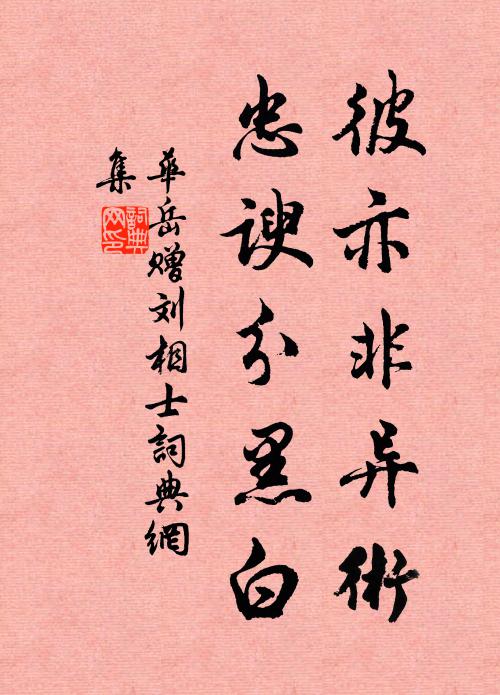 彼亦非异術
忠谀分黑白
華岳赠刘相士詞典網
集
詞典
网印